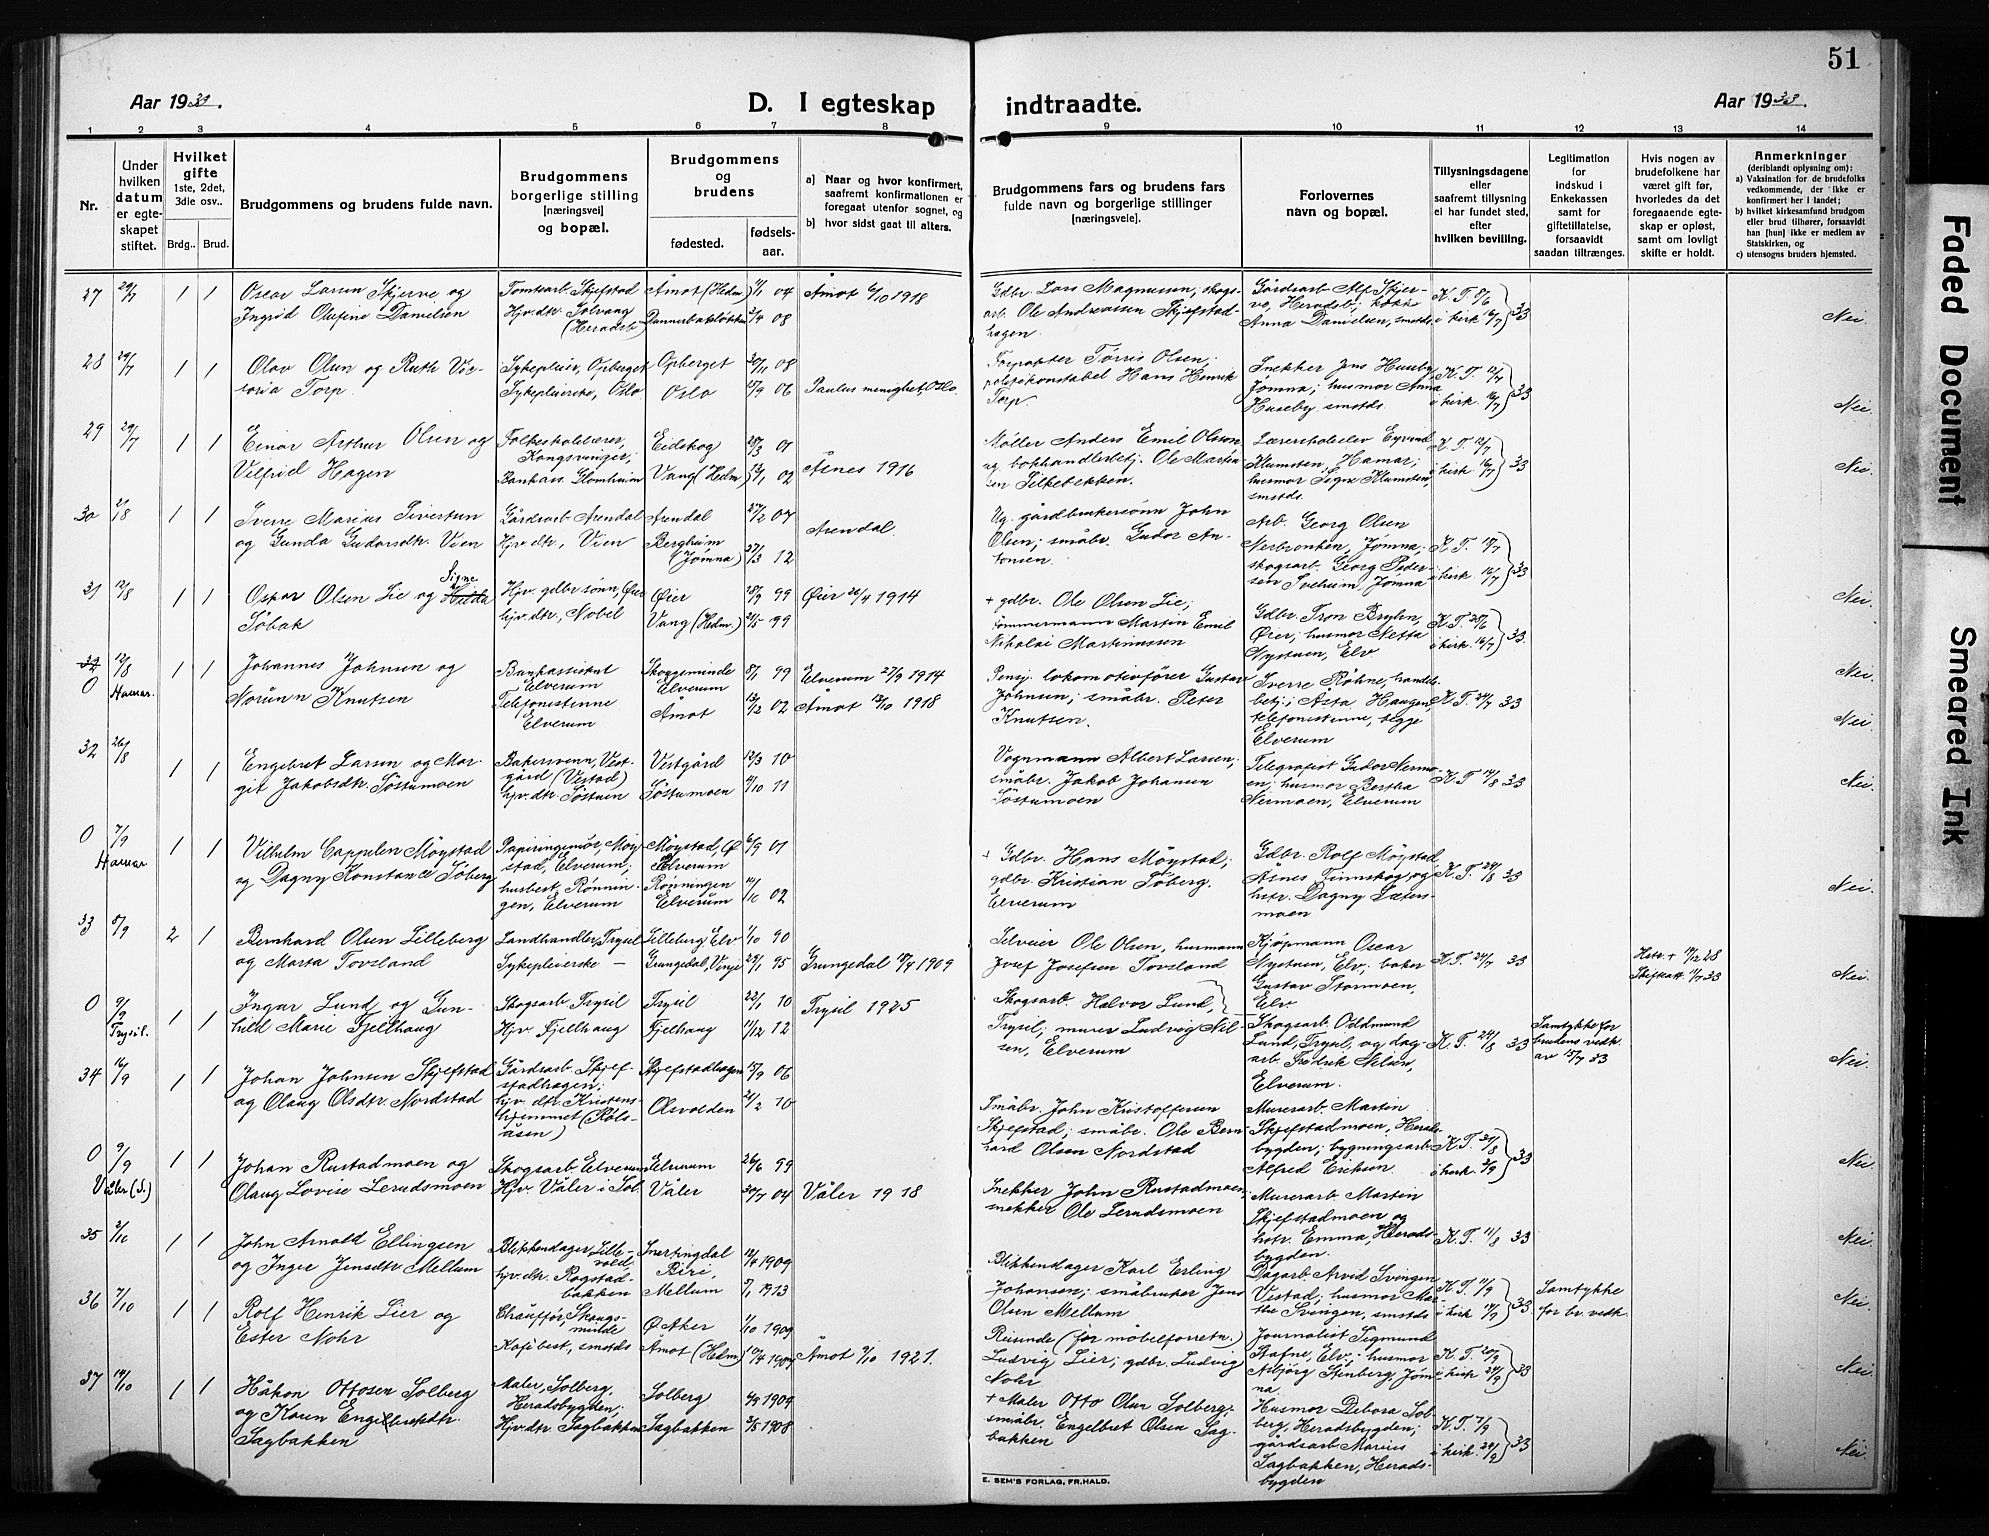 51
Aar 1933.
D. I egteskap
indtraadte.
Aar 1933.
1 2 3 4 5 6 7 8 9 10 11 12 13 14
Nr.
Under
hvilken
datum
er egte-
skapet
stiftet.
Hvilket
gifte
1ste, 2det,
3die osv..
Brdg.. Brud.
Brudgommens og brudens fulde navn.
Brudgommens
borgerlige stilling
[næringsvei]
og bopæl.
Brudgommens
og
brudens
fødested.
fødsels-
aar.
a) Naar og hvor konfirmert,
saafremt konfirmationen er
foregaat utenfor sognet, og
b) hvor sidst gaat til alters.
Brudgommens fars og brudens fars
fulde navn og borgerlige stillinger
[næringsveie].
Forlovernes
navn og bopæl.
Tillysningsdagene
eller
saafremt tillysning
ei har fundet sted,
efter
hvilken bevilling.
Legitimation
for
indskud i
Enkekassen
samt for
giftetillatelse,
forsaavidt
saadan tiltrænges.
Hvis nogen av
brudefolkene har
været gift før,
hvorledes da det
foregaaende egte-
skap er opløst,
samt om lovligt
skifte er holdt.
Anmerkninger
(deriblandt oplysning om):
a) Vaksination for de brudefolks
vedkommende, der ikke er
konfirmert her i landet;
b) hvilket kirkesamfund brudgom
eller brud tilhører, forsaavidt
han [hun] ikke er medlem av
Statskirken, og
c) utensogns bruders hjemsted.
27 29/7 1 1
Oscar Larsen Skjerve og
Ingrid Olufine Danielsen
Tomtearb. Skjefstad
Hjv. dtr. Solvang
(Heradsb.)
Åmot (Hedm.) 04
08
Åmot 6/10 1918
Gdbr. Lars Magnussen, skogs-
arb. Ole Andreassen Skjefstad-
hagen.
Gårdsarb. Alf Skjer-
ve, Heradsb.; kokke
Anna Danielsen, smstds.
K. T. 8/6
i kirk 16/7 33
Nei.
28 29/7 1 1
Olav Olsen og Ruth Vic-
toria Torp.
Sykepleier, Opberget
Sykepleierske, Oslo
Opberget 30/11 08
Oslo 06
Paulus menighet, Oslo.
Forpakter Tørris Olsen;
politikonstabel Hans Henrik
Torp.
Snekker Jens Huseby,
Jømna; husmor Anna
Huseby smstds.
K. T. 12/7
i kirk. 16/7 33
Nei.
29 29/7 1 1
Einar Arthur Olsen og
Vilfrid Hagen
Folkeskolelærer,
Kongsvinger;
Bankass. Glomheim
Eidskog 01
Vang (Hedm.) 02
Åsnes 1916
Møller Anders Emil Olsson
og bokhandlerbetj. Ole Martin-
sen Silkebekken.
Lærerskoleelev Eyvind
Klumsten, Hamar;
husmor Signe Klumsten,
smstds.
K. T. 12/7
i kirk. 16/7 33
Nei.
30 2/8 1 1
Sverre Marius Sivertsen
og Gunda Gudorsdtr. Vien
Gårdsarb. Arendal
Hjv. dtr., Vien
Arendal 27/2 07
Bergheim
(Jømna) 27/3 12
Arendal.
Ug. gårdbrukersønn John
Olsen; småbr. Gudor An-
tonsen.
Arb. Georg Olsen
Nesbronken, Jømna;
skogsarb. Georg Peder-
sen Sveheim, Jømna
K. T. 10/7
i kirk. 16/7 33
Nei.
31 12/8 1 1
Oskar Olsen Lie og Signe
Söbak
Hjv. gdbr. sønn, Øier
hjv. dtr., Nobel
Øier 28/9 99
Vang (Hedm.) 21/5 99
Øier 26/4 1914
+ gdbr. Ole Olsen Lie;
tømmermann Martin Emil
Nikolai Martinussen
Gdbr. Tron Bryhn,
Øier; husmor Netta
Nystuen, Elv
K. T. 28/6
i kirk. 16/7 33.
Nei.
0 12/8 1 1
Hamar.
Johannes Johnsen og
Norunn Knutsen
Bankassistent
Elverum
Telefonistinne
Elverum
Skogsminde
Elverum 8/1 99
Åmot 13/2 02
Elverum 27/9 1914
Åmot 13/10 1918
Pensj. lokomotivfører Gustav
Johnsen; småbr. Peter
Knutsen.
Sverre Röhne, handels-
betj.; Åsta Haugen,
telefonistinne, begge
Elverum
K. T. 24/7 33
Nei.
32 26/8 1 1
Engebret Larsen og Mar-
git Jakobsdtr. Söstumoen
Bakersvenn, Vest-
gård (Vestad)
hjv. dtr. Söstuen
Vestgård 12/3 10
Söstumoen 4/10 11
Vognmann Albert Larsen;
småbr. Jakob Johansen
Söstumoen
Telegrafist Gudor Nermo-
en; husmor Bertha
Nermoen, Elverum
K. T. 14/8 33
Nei.
0 7/9 1 1
Hamar.
Vilhelm Cappelen Möystad
og Dagny Konstance Söberg
Papiringeniør, Möy-
stad, Elverum;
husbest. Rönnin-
gen, Elverum
Möystad,
Elverum 6/9 01
Rönningen
Elverum 02
+ Gdbr. Hans Möystad;
gdbr. Kristian Söberg.
Elverum
Gdbr. Rolf Möystad,
Åsnes Finnskog, og
hstr. Dagny Sæters-
moen
K. T. 24/8 33
Nei.
33 8/9 2 1
Bernhard Olsen Lilleberg
og Marta Tovsland
Landhandler, Trysil
Sykepleierske —
Lilleberg, Elv 1/10 90
Grungedal, Vinje 29/1 95
Grungedal 1909
Selveier Ole Olsen, husmann
Josef Josefsen Tovsland
Kjøpmann Oscar
Nystuen, Elv; baker
Gustav Stormoen,
Elv
K. T. 24/7 33
Hstr. + 14/12 28
Skifteatt. 33
Nei.
0 9/9 1 1
Trysil.
Ingar Lund og Gun-
hild Marie Fjellhaug
Skogsarb. Trysil
Hjv. Fjellhaug
Trysil 22/1 10
Fjelhaug 11/12 12
Trysil 1925
Skogsarb. Halvor Lund,
Trysil; murer Ludvig Nil-
sen, Elverum
Skogsarb. Oddmund
Lund, Trysil, og dag-
arb. Fredrik Nilsen,
Elverum.
K. T. 24/8 33
Samtykke for
brudens vedk.
av 15/7 33
Nei.
34 16/9 1 1
Johan Johnsen Skjefstad
og Olaug Olsdtr. Nordstad
Gårdsarb. Skjef-
stadhagen;
hjv. dtr. Kristens-
hjemmet (Köls-
åsen)
Skjefstadhagen 15/9 06
Olsvolden 21/2 10
Småbr. John Kristoffersen
Skjefstad; småbr. Ole Bern-
hard Olsen Nordstad
Murerarb. Martin
Skjefstadmoen, Herads-
bygden; bygningsarb.
Alfred Eriksen.
K. T. 31/8
i kirk. 3/9 33
Nei.
0 9/9 1 1
Våler (S.)
Johan Rustadmoen og
Olaug Lovise Lerudsmoen
Skogsarb. Elverum
Hjv. Våler i Sol.
Elverum 26/6 99
Våler 30/7 04
Våler 1918
Snekker John Rustadmoen;
snekker Ole Lerudsmoen
Murerarb. Martin
Skjefstadmoen og
hstr. Emma, Herads-
bygden.
K. T. 11/8 33
Nei.
35 2/10 1 1
John Arnold Ellingsen
og Inger Jensdtr. Mellum
Blikkenslager, Lille-
vold
hjv. dtr. Rogstad-
bakken
Snertingdal
Biri, 12/4 1909
Mellum 7/1 1913
Blikkenslager Karl Erling
Johansen; småbruker Jens
Olsen Mellum
Dagarb. Arvid Svingen
Vestad; husmor Mar-
the Svingen, smstds.
K. T. 11/9
i kirk. 17/9 33
Samtykke
for br. vedk.
Nei.
36 7/10 1 1
Rolf Henrik Lier og
Ester Nohr
Chauffør, Skogs-
minde
Kafébest., smstds
Ø Aker 1/10 1909
Åmot (Hedm.) 1907
Åmot 9/10 1921.
Reisende (for möbelforretn.)
Ludvig Lier; gdbr. Ludvig
Nohr
Journalist Sigmund
Stafne, Elv.; husmor
Asbjörg Stenberg, Jöm-
na.
K. T. 20/9
i kirk. 24/9 33
Nei.
37 14/10 1 1
Håkon Ottosen Solberg
og Karen Engelbretsdtr.
Sagbakken
Maler, Solberg,
Heradsbygden;
Hjv. dtr. Sagbakken
Solberg 1904
Sagbakken 1908
+ Maler Otto Olsen Solberg;
småbr. Engelbret Olsen Sag-
bakken
Husmor Debora Sol-
berg, Heradsbygden;
gårdsarb. Marius
Sagbakken, Herads-
bygden
K. T. 7/9
i kirk. 24/9 33
Nei.
E. SEM'S FORLAG, FR.HALD.
Faded Document
Smeared Ink